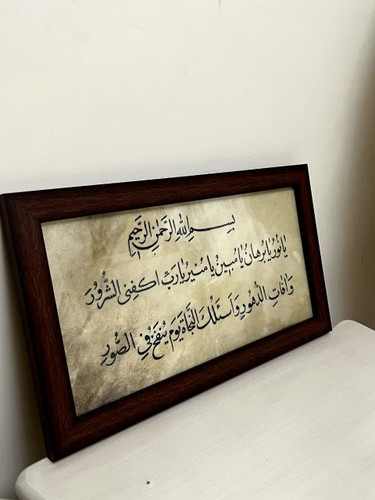 بِسْمِ اللهِ الرَّحْمٰنِ الرَّحِيْمِ
يَا نُوْرُ يَا بُرْهَانُ يَا مُبِيْنُ يَا مُنِيْرُ يَا رَبِّ اكْفِنِى الشُّرُوْرَ
وَ اٰفَاتِ الدُّهُوْرِ وَ اَسْئَلُكَ النَّجَاةَ يَوْمَ يُنْفَخُ فِى الصُّوْرِ